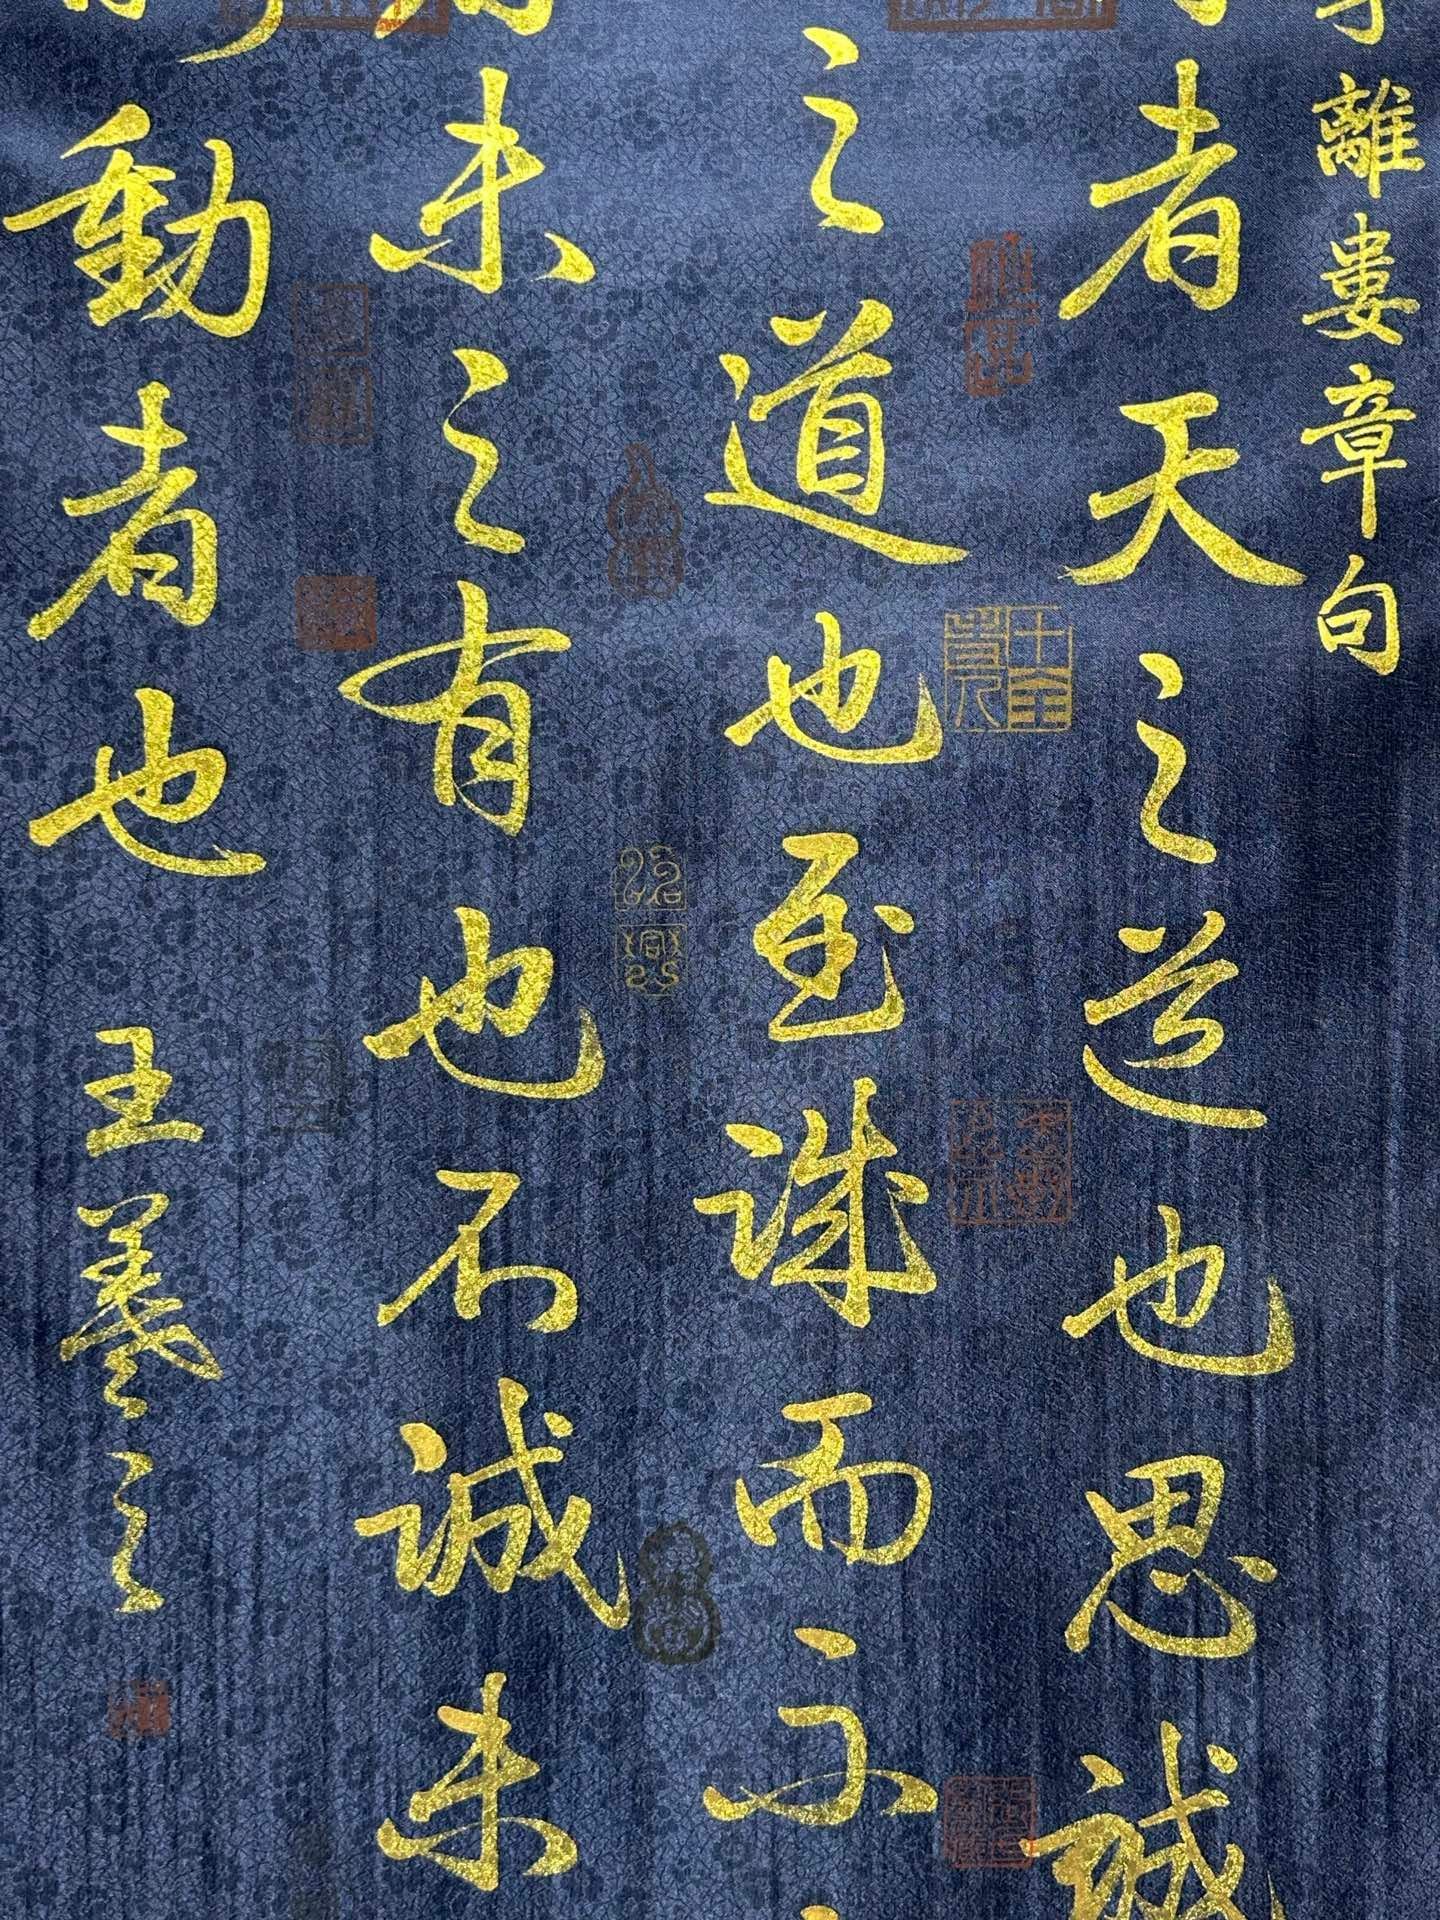 離婁章句
者天之道也思誠
之道也至誠而不
未之有也不誠未
動者也
王羲之
十全